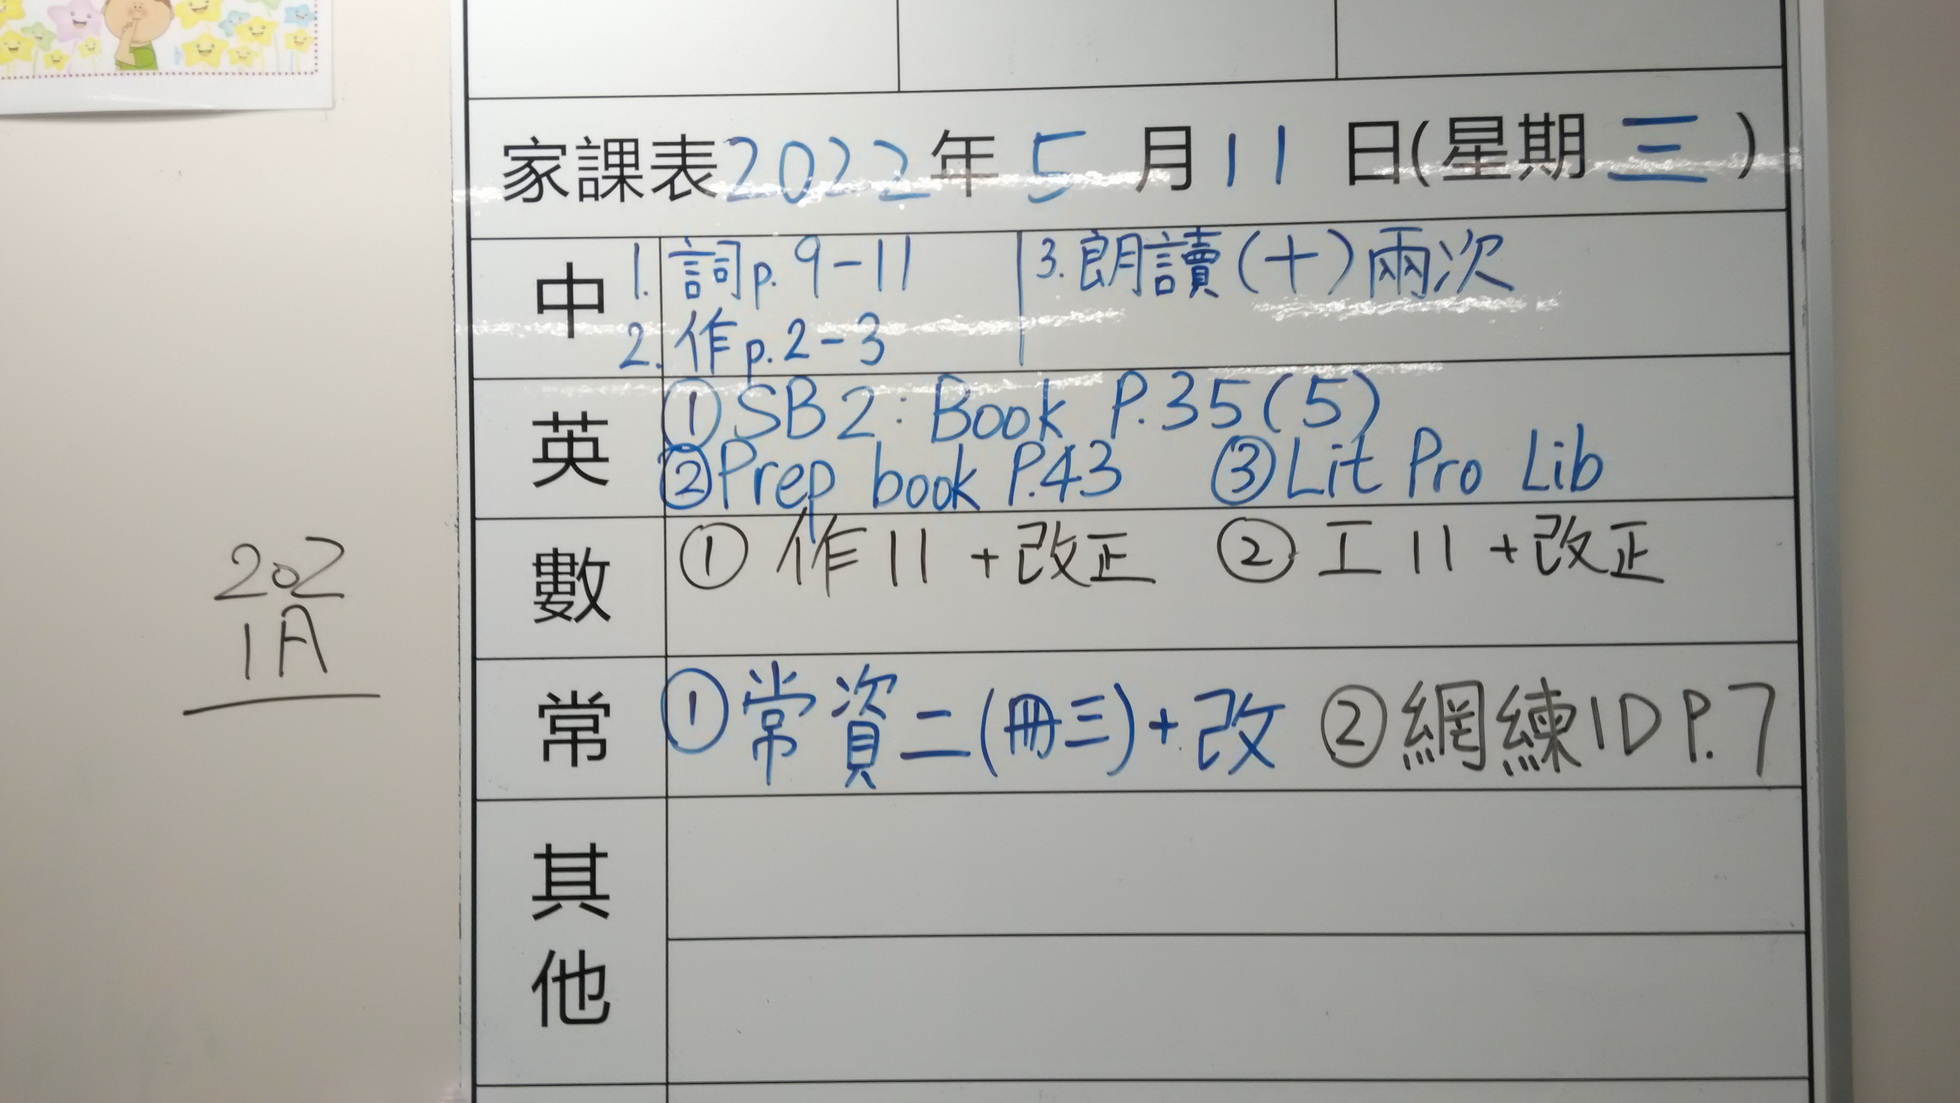 家課表2022年5月11日(星期三)
中 1. 詞p. 9-11 3. 朗讀(十)兩次
2. 作p. 2-3
英 ① SB2: Book P.35(5)
② Prep book P.43 ③ Lit Pro Lib
數 ① 作11 +改正 ② 工11 +改正
常 ① 常資二(冊三)+改 ② 網練1D P.7
其他
202
1A